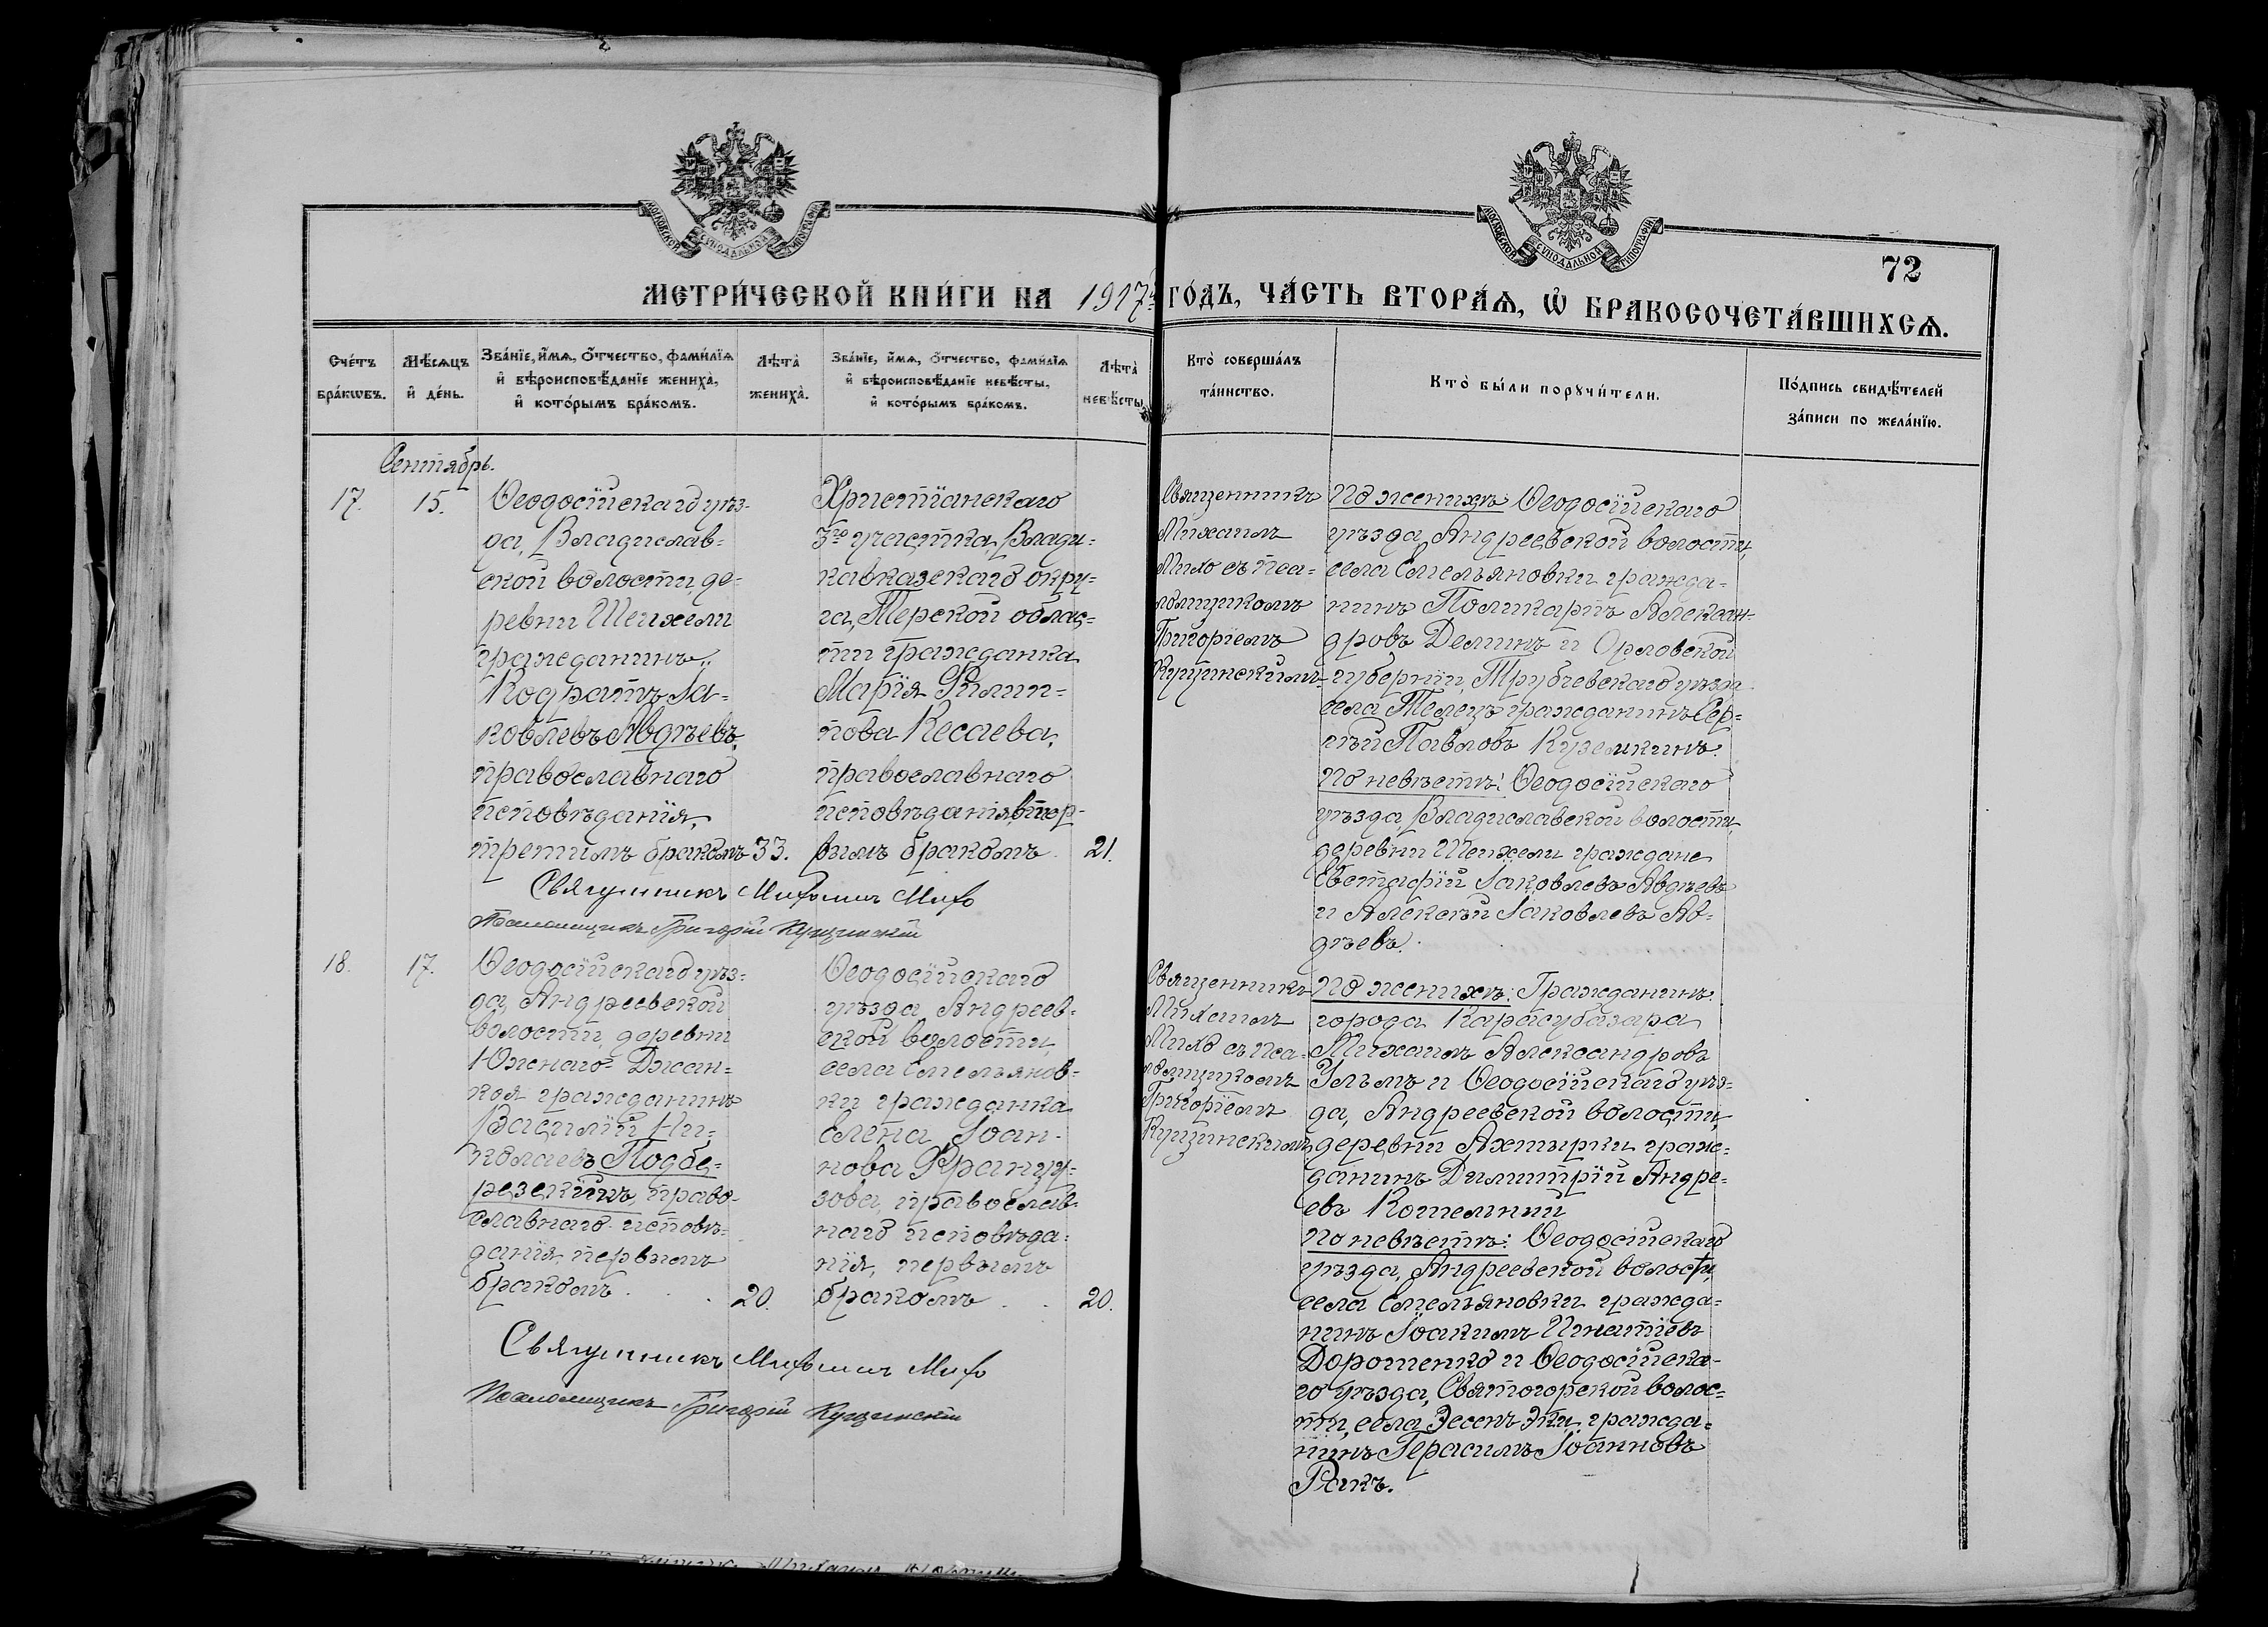 МОСКОВСКОЙ СѴНОДАЛЬНОЙ ТИПОГРАФІИ
МОСКОВСКОЙ СѴНОДАЛЬНОЙ ТИПОГРАФІИ
72
МЕТРИ́ЧЕСКОЙ КНИ́ГИ НА 1917й ГО́ДЪ, ЧА́СТЬ ВТОРА́Ѧ, Ѡ҆ БРАКОСОЧЕТА́ВШИХСѦ.
Сче́тъ
бра́кѡвъ.
Мѣ́сѧцъ
и҆ де́нь.
Зва́нїе, и҆́мѧ, ѻ҆́тчество, фами́лїѧ
и҆ вѣроисповѣ́данїе жениха̀,
и҆ кото́рымъ бра́комъ.
Лѣта̀
жениха̀.
Зва́нїе, и҆́мѧ, ѻ҆́тчество, фами́лїѧ
и҆ вѣроисповѣ́данїе невѣ́сты,
и҆ кото́рымъ бра́комъ.
Лѣта̀
невѣ́сты
Кто̀ соверша́лъ
та́инство.
Кто̀ бы́ли порꙋчи́тели.
По́дпись свидѣ́телей
за́писи по жела́нїю.
Сентябрь.
17.
15.
Ѳеодосійскаго уѣз-
да, Владислав-
ской волости, де-
ревни Шейхели
гражданинъ
Кодратъ Іа-
ковлевъ Авдѣевъ,
православнаго
исповѣданія,
третимъ бракомъ
33.
Христіанскаго
3го участка, Влади-
кавказскаго окру-
га, Терской облас-
ти гражданка
Марія Филип-
пова Кесаева,
православнаго
исповѣданія, пер-
вымъ бракомъ
21.
Священникъ
Михаилъ
Михо съ пса-
ломщикомъ
Григоріемъ
Кущинскимъ
По женихѣ: Ѳеодосійскаго
уѣзда, Андреевской волости,
села Емельяновки гражда-
нинъ Поликарпъ Алексан-
дровъ Деминъ и Орловской
губерніи, Трубчевскаго уѣзда
села Телецъ гражданинъ Сер-
гѣй Павловъ Куземкинъ.
По невѣстѣ: Ѳеодосійскаго
уѣзда, Владиславской волости,
деревни Шейхели граждане
Евстафій Іаковлевъ Авдѣевъ
и Алексѣй Іаковлевъ Ав-
дѣевъ.
Священникъ Михаилъ Михо
Псаломщикъ Григорій Кущинскій
18.
17.
Ѳеодосійскаго уѣз-
да, Андреевской
волости, деревни
Южнаго Джан-
коя гражданинъ
Василій Ни-
колаевъ Подбе-
резскій, право-
славнаго исповѣ-
данія, первымъ
бракомъ
20.
Ѳеодосійскаго
уѣзда, Андреев-
ской волости,
села Емельянов-
ки гражданка
Елена Іоан-
нова Француу-
зова, православ-
наго исповѣда-
нія, первымъ
бракомъ
20.
Священникъ
Михаилъ
Михо съ пса-
ломщикомъ
Григоріемъ
Кущинскимъ
По женихѣ: Гражданинъ
города Карасубазара
Михаилъ Александровъ
Ульмъ и Ѳеодосійскаго уѣз-
да, Андреевской волости,
деревни Ахтырки граж-
данинъ Димитрій Андре-
евъ Котельный
По невѣстѣ: Ѳеодосійскаго
уѣзда, Андреевской волости,
села Емельяновки гражда-
нинъ Іоакимъ Игнатіевъ
Дорошенко и Ѳеодосійска-
го уѣзда, Святогорской волос-
ти, села Эссенъ Эки, гражда-
нинъ Герасимъ Іоанновъ
Ракъ.
Священникъ Михаилъ Михо
Псаломщикъ Григорій Кущинскій